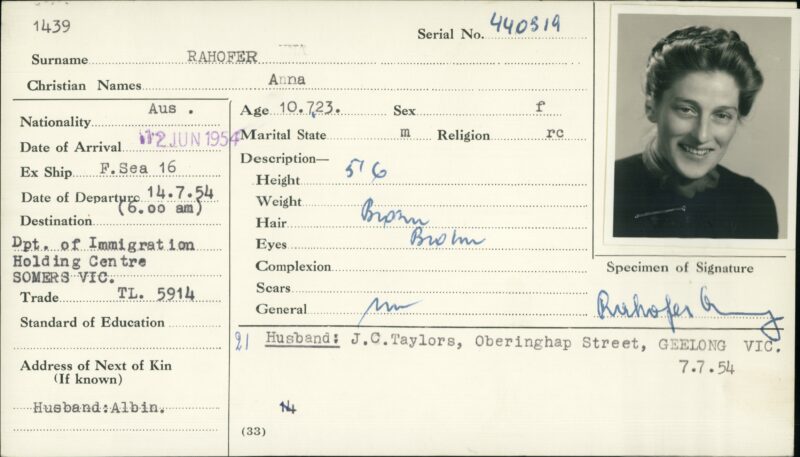 1439
Serial No. 440319
Surname RAHOFER
Christian Names Anna
Nationality Aus .
Date of Arrival 12 JUN 1954
Ex Ship F.Sea 16
Date of Departure 14.7.54
(6.00 am)
Destination
Dpt. of Immigration
Holding Centre
SOMERS VIC.
Trade TL. 5914
Standard of Education
Address of Next of Kin
(If known)
Husband:Albin.
Age 10.7.23. Sex f
Marital State m Religion rc
Description—
Height 5'6
Weight
Hair Brown
Eyes Brown
Complexion
Scars
General
Specimen of Signature
Rahofer
21 Husband: J.C.Taylors, Oberinghap Street, GEELONG VIC.
7.7.54
(33)